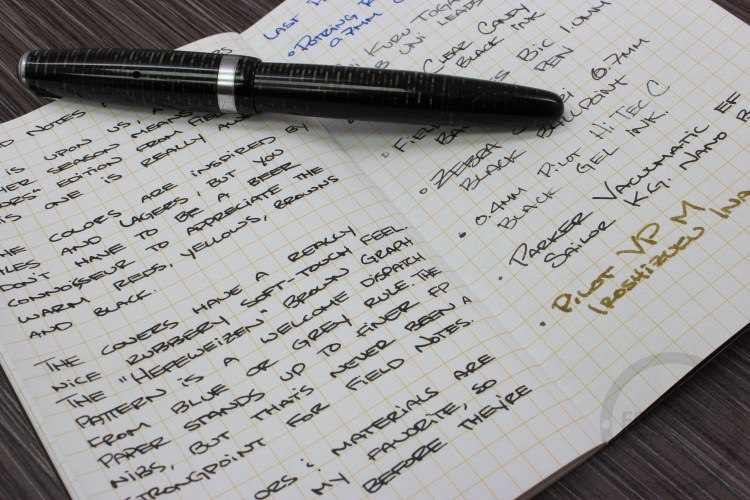 D NOTES
IS UPON US, A
HER SEASON MEANS
EDITION FROM FIEL
IS ONE IS REALLY
COLORS ARE INSPIRED BY
LES AND LAGERS, BUT YOU
DON'T HAVE TO BE A BEER
CONNOISSEUR TO APPRECIATE THE
WARM REDS, YELLOWS, BROWNS
AND BLACK.
THE COVERS HAVE A REALLY
NICE RUBBERY SOFT-TOUCH FEEL.
THE "HEFEWEIZEN" BROWN GRAPH
PATTERN IS A WELCOME DISPATCH
FROM BLUE OR GREY RULE. THE
PAPER STANDS UP TO FINER FP
NIBS, BUT THAT'S NEVER BEEN A
STRONGPOINT FOR FIELD NOTES.
ORS & MATERIALS ARE
MY FAVORITE, SO
BEFORE THEY'RE
LAST
ROTRING
0.7MM
KURU TOGA
UNI LEADS
CLEAR CANDY
BLACK INK
BIC 1.0MM
PEN
• FIEL
• ZEBRA 0.7MM
BLACK BALLPOINT
• 0.4MM PILOT HI-TEC C
BLACK GEL INK.
• PARKER VACUMATIC EF
SAILOR K.G. NANO B
• PILOT VP M
IROSHIZUKU INA